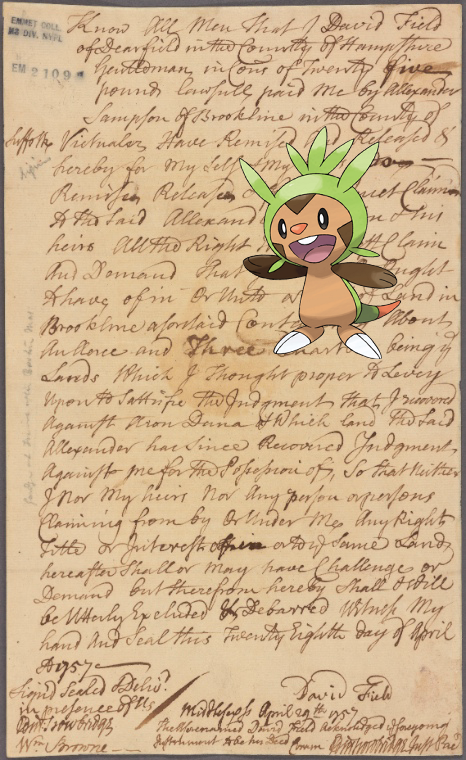 EMMET COLL.
MS DIV. NYPL
EM 2109
Know All Men That I David Field
of Dearfield in the County of Hampshire
Gentleman, in Cons of Twenty five
pounds lawfull paid me by Alexander
Sampson of Brookline in the County of
Suffolk Victualer Have Remised Released &
hereby for my Self & My
Remise Release Claim
to the Said Alexand his
heirs All the Right Claim
And Demand That Ought
to have of in Or Unto Land in
Brookline aforesaid About
An Acre and Three being ye
Lands Which I Thought proper to Levey
upon to Sattisfie the Judgment that I recovered
Against Aron Dana & Which land the Said
Alexander has Since Recovered Judgment
Against me for the Possession of, So that Neither
I Nor My heirs Nor Any person or persons
Claiming from by Or Under Me Any Right
Title or Interest in or to ye Same Land
hereafter Shall or May have Challenge or
Demand but therefrom hereby Shall & Will
be Utterly Excluded & Debarred Witness My
hand And Seal this Twenty Eighth day of April
A 1757
Signed Sealed & Delivd.
in presence of Us
David Field
Middlesex April 29th 1757
The Above named David Field Acknowledged ye foregoing
Instrument to be his Deed
Wm Browne
Just Pac